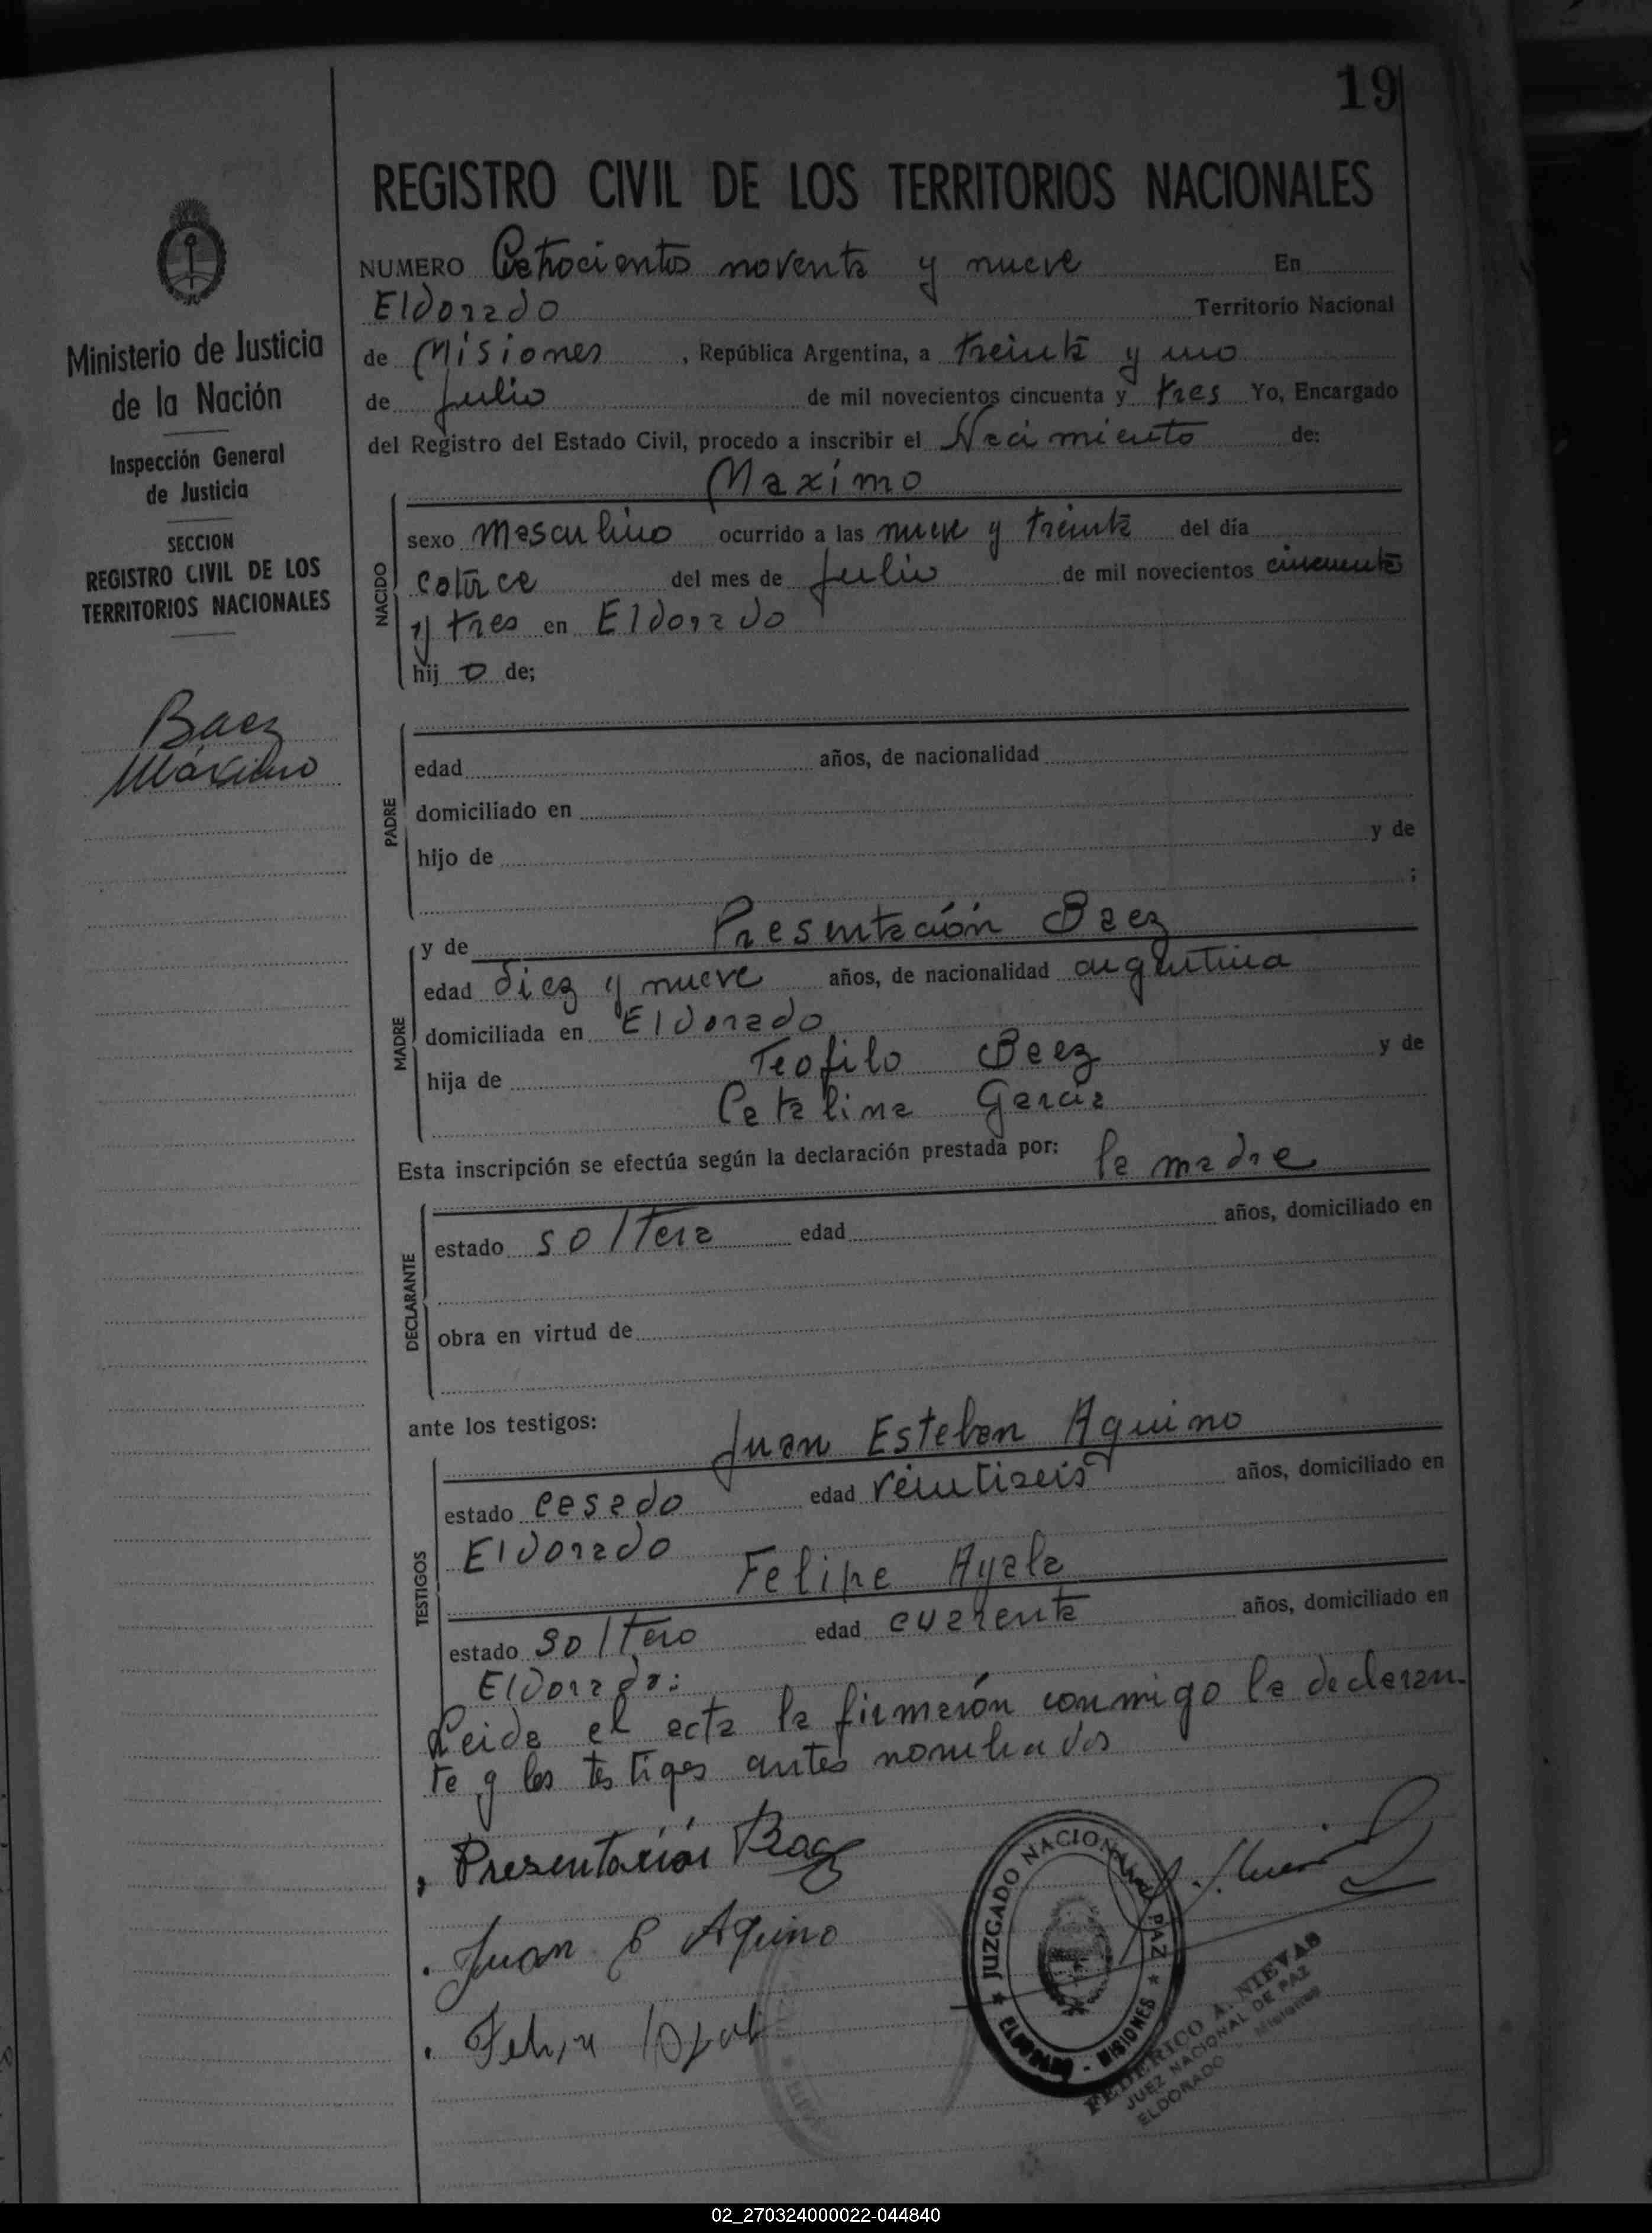 19
REGISTRO CIVIL DE LOS TERRITORIOS NACIONALES
Ministerio de Justicia
de la Nación
Inspección General
de Justicia
SECCION
REGISTRO CIVIL DE LOS
TERRITORIOS NACIONALES
Baez
Máximo
NUMERO Catrocientos noventa y nueve En
Eldorado Territorio Nacional
de Misiones , República Argentina, a treinta y uno
de Julio de mil novecientos cincuenta y tres Yo, Encargado
del Registro del Estado Civil, procedo a inscribir el Nacimiento de:
Maximo
NACIDO
sexo masculino ocurrido a las nueve y treinta del día
catorce del mes de Julio de mil novecientos cincuenta
y tres en Eldorado
hij o de;
PADRE
edad años, de nacionalidad
domiciliado en
hijo de y de
;
MADRE
y de Presentación Baez
edad diez y nueve años, de nacionalidad argentina
domiciliada en Eldorado
hija de Teofilo Baez y de
Catalina Garcia
Esta inscripción se efectúa según la declaración prestada por: la madre
DECLARANTE
estado soltera edad años, domiciliado en
obra en virtud de
ante los testigos: Juan Esteban Aquino
TESTIGOS
estado casado edad veintiseis años, domiciliado en
Eldorado
Felipe Ayala
estado soltero edad cuarenta años, domiciliado en
Eldorado:
Leida el acta la firmarón conmigo la declaran-
te y los testigos antes nombrados
Presentación Baez
Juan E Aquino
JUZGADO NACIONAL DE PAZ
ELDORADO - MISIONES
FEDERICO A. NIEVAS
JUEZ NACIONAL DE PAZ
ELDORADO Misiones
02_270324000022-044840